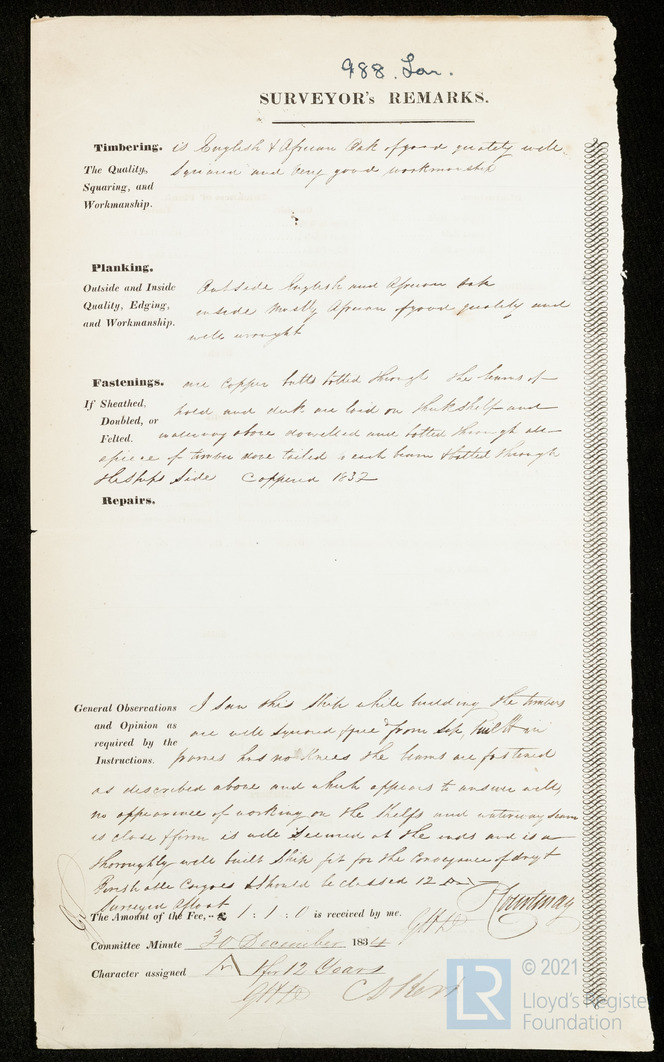 988. Lon.
SURVEYOR's REMARKS.
Timbering. is English & African Oak of good quality well
The Quality, Squared and very good workmanship
Squaring, and
Workmanship.
Planking.
Outside and Inside Outside English and African Oak
Quality, Edging, inside mostly African of good quality and
and Workmanship. well wrought
Fastenings. are copper butts bolted through the beams of
If Sheathed, hold and deck are laid on thick shelf and
Doubled, or
Felted. waterway above dowelled and bolted through all
a piece of timber dove tailed each beam & bolted through
the Ships Side Coppered 1832
Repairs.
General Observations I saw this Ship while building the timbers
and Opinion as are well squared & free from Sap, built in
required by the has no Knees the beams are fastened
Instructions.
as described above and which appears to answer well
no appearance of working on the Shelfs and waterway seam
is close & firm is well Seemed at the ends and is a
thoroughly well built Ship fit for the Conveyance of dry &
Perishable Cargoes & Should be classed 12 A
Surveyed afloat
The Amount of the Fee, .. £ 1 : 1 : 0 is received by me. Courtenay
Committee Minute 30 December 1834
Character assigned A 1 for 12 Years
© 2021
Lloyd's Register
Foundation
LR